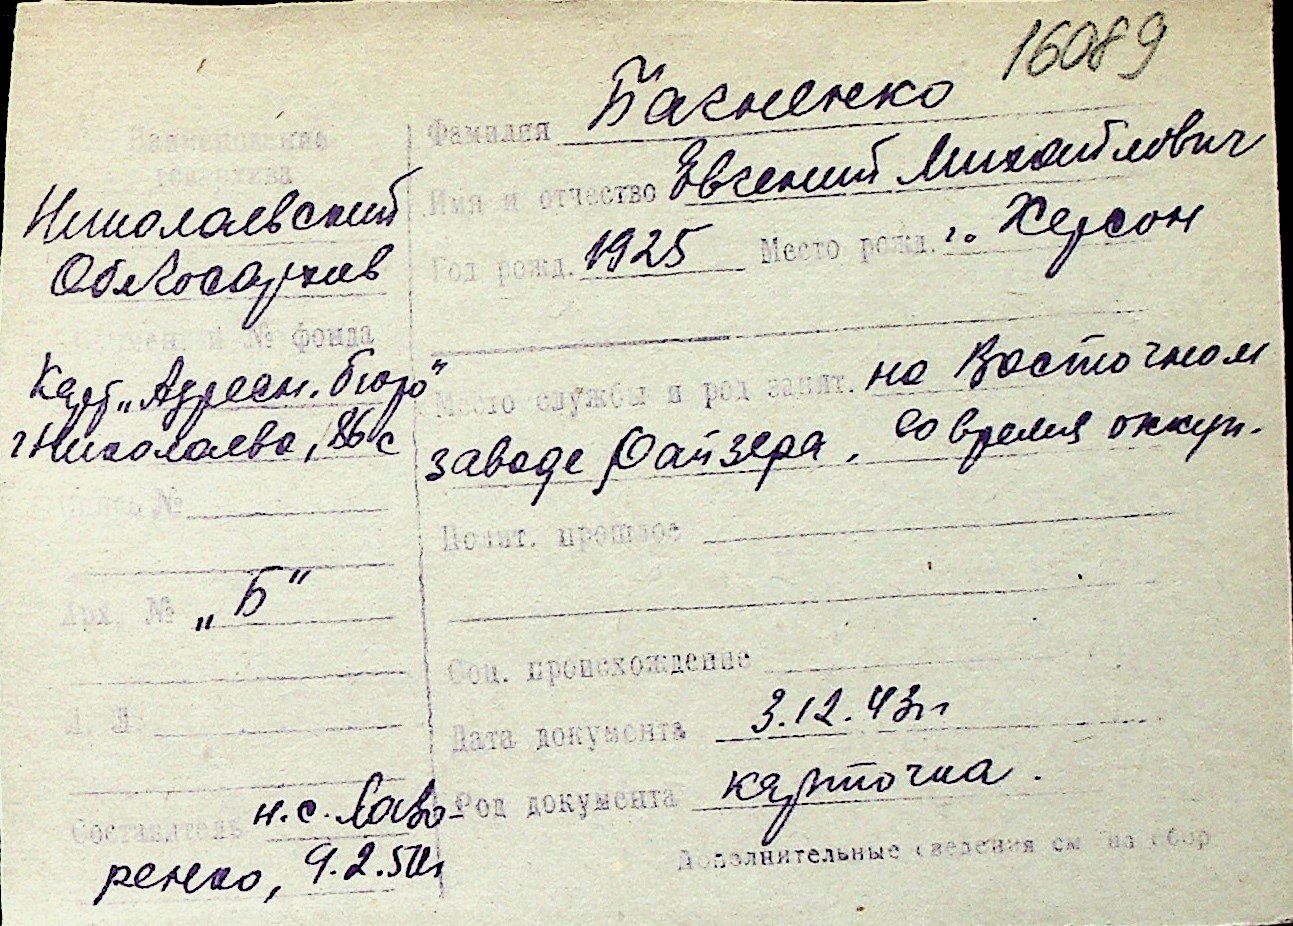 16089
Наименование
госархива
Николаевский
Облгосархив
№ фонда
Карт „Адресн. бюро"
г Николаева,
Опись №
Арх. № „Б"
Л. Л.
Составитель н.с. Лавро-
ренко, 9.2.50г
Фамилия Багненко
Имя и отчество Евгений Михайлович
Год рожд. 1925 Место рожд. г. Херсон
Место службы и род занят. на Восточном
заводе Файзера. во время оккуп.
Полит. прошлое
Соц. происхождение
Дата документа 3.12.43г
Род документа карточка.
Дополнительные сведения см на обор